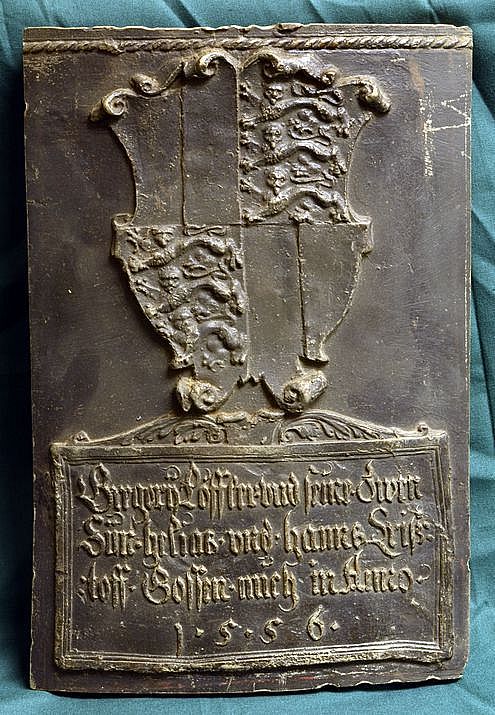 Gregory Löffler und seine Zwen
Sün helias und hanns Criß-
toff Gossen mich in Anno
1·5·5·6·